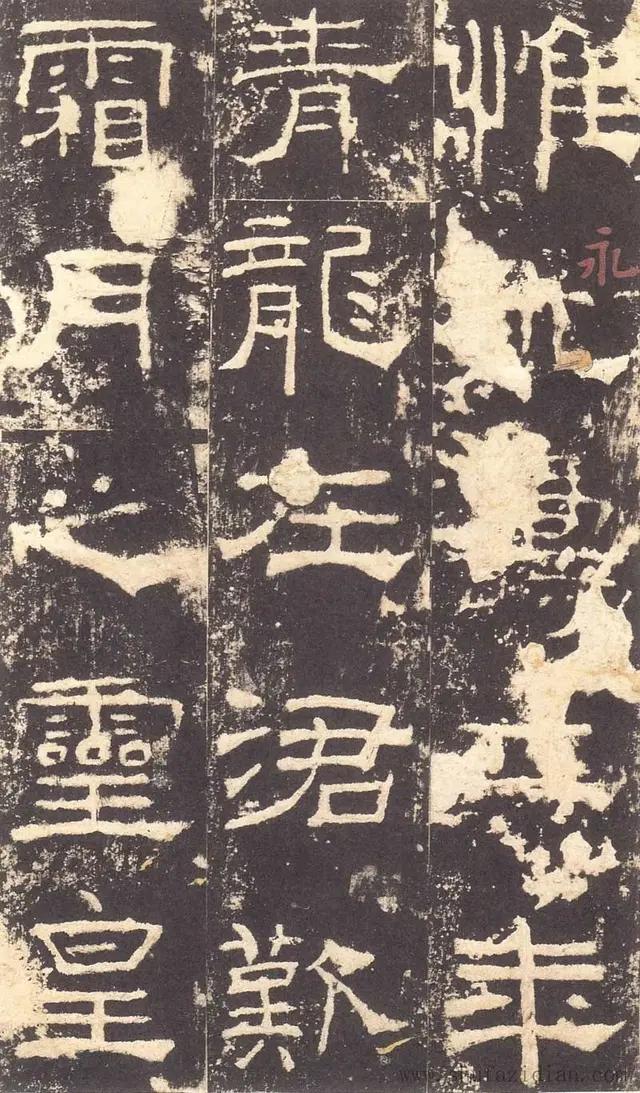 惟永年
青龍在涒歎
霜月之靈皇
www.shufazidian.com